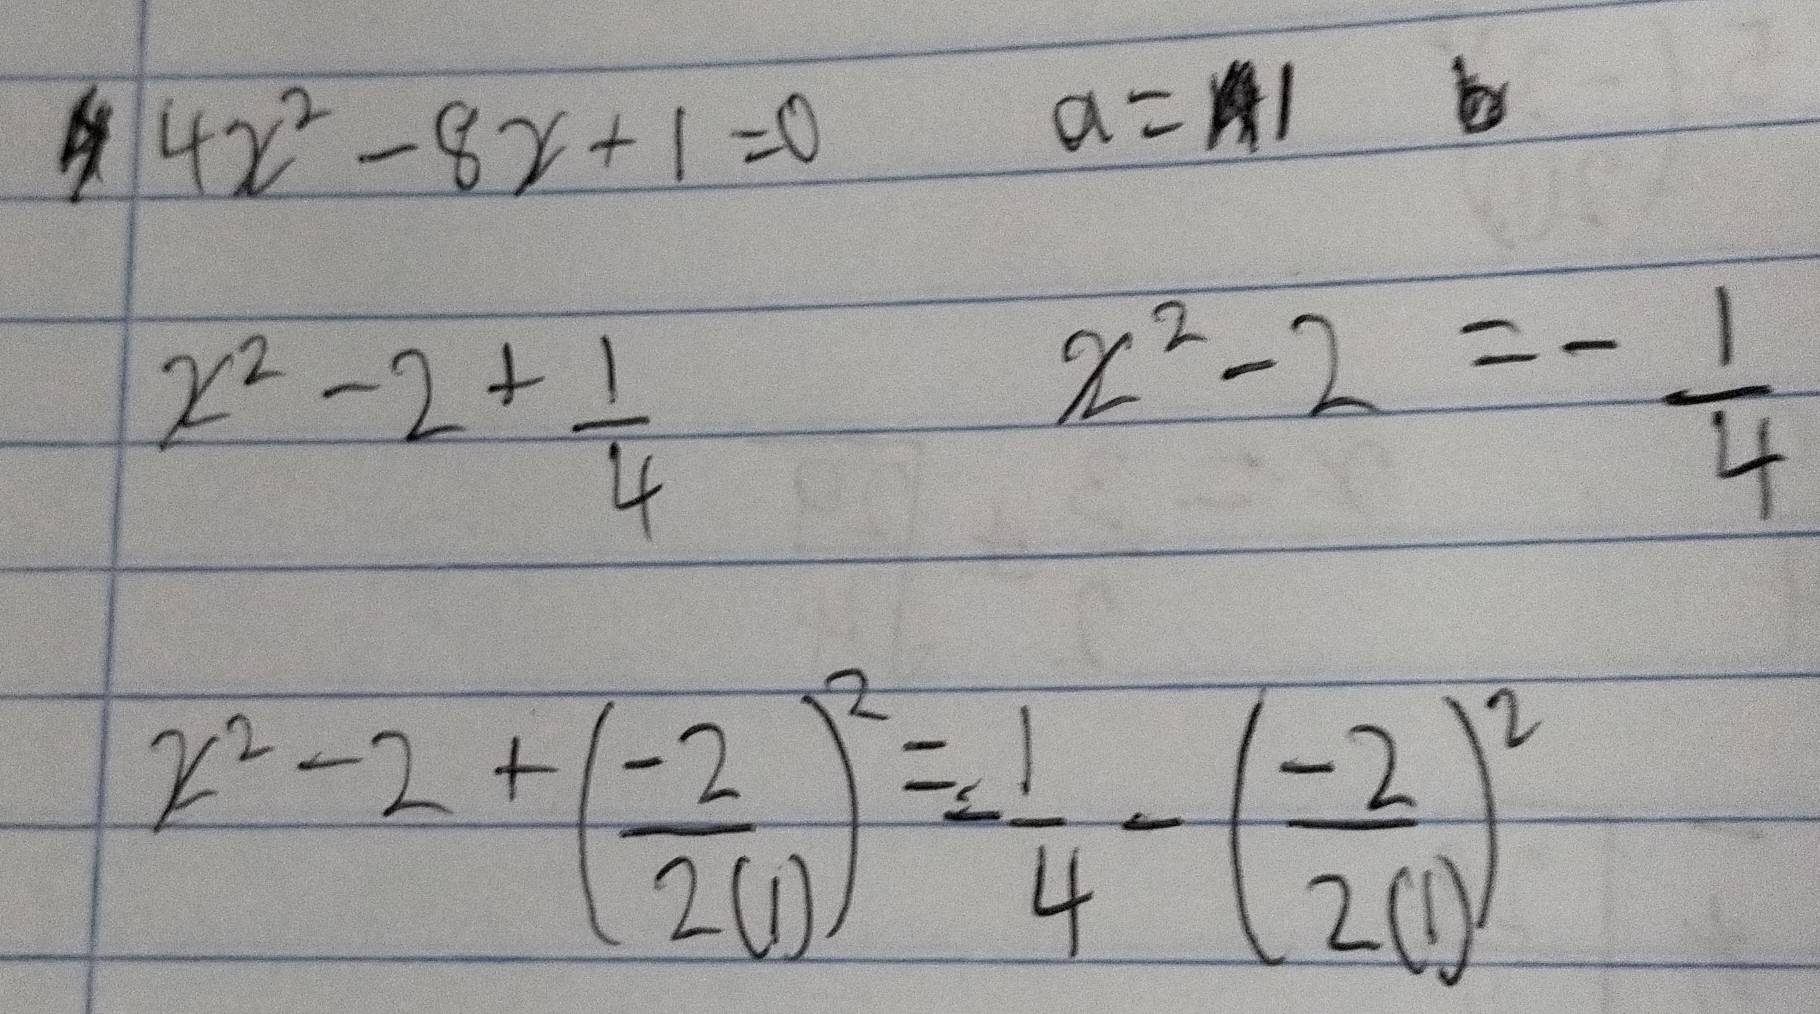 4x² - 8x + 1 = 0 a = 1 b
x² - 2 + 1/4 x² - 2 = - 1/4
x² - 2 + (-2/2(1))² = - 1/4 - (-2/2(1))²